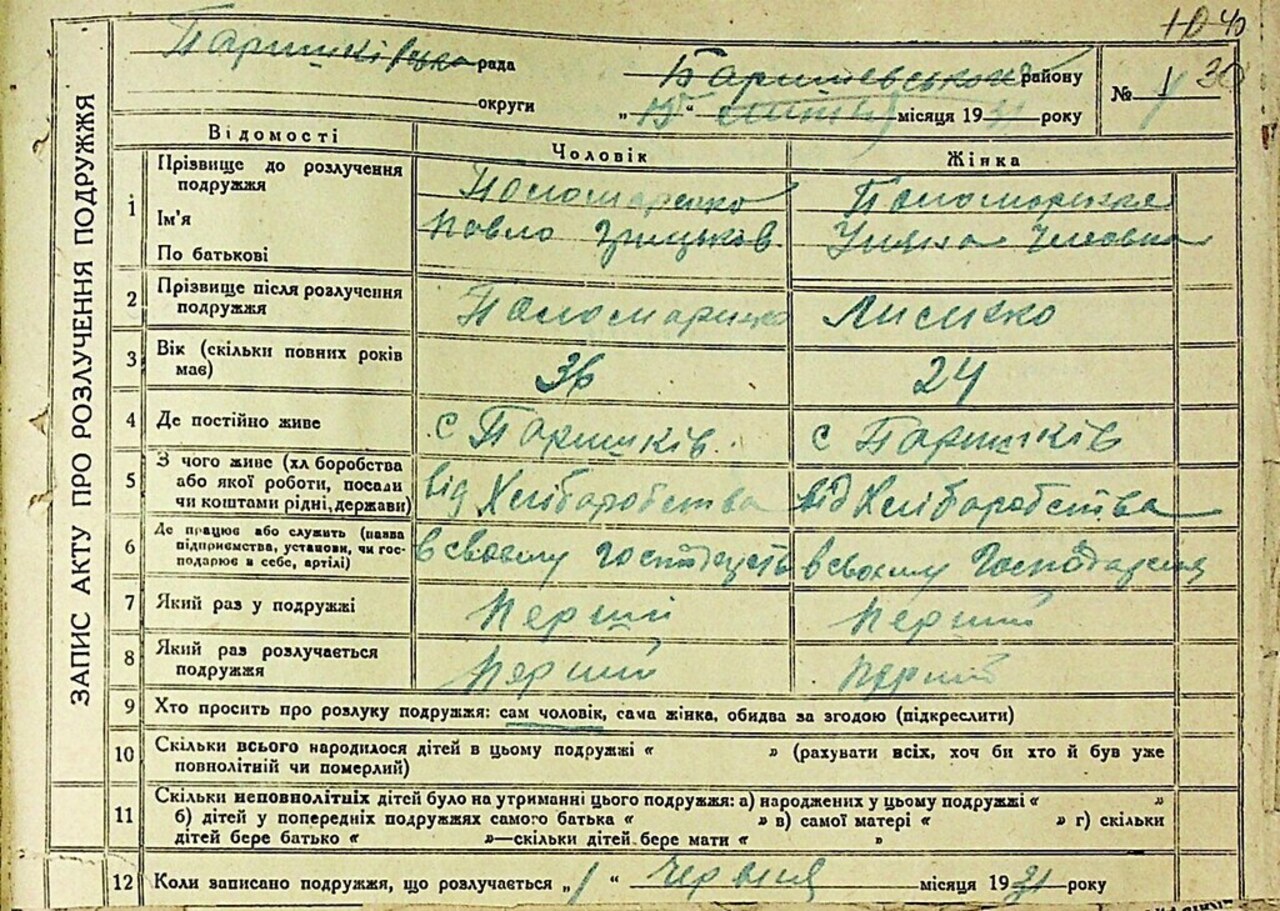 ЗАПИС АКТУ ПРО РОЗЛУЧЕННЯ ПОДРУЖЖЯ
Паришківська рада Баришевського району
округи „15“ місяця 1931 року
№ 1 30
Відомості Чоловік Жінка
1 Прізвище до розлучення подружжя Пономаренко Пономаренко
Ім'я Павло Грицьків Уляна
По батькові
2 Прізвище після розлучення подружжя Пономаренко Лисенко
3 Вік (скільки повних років має) 36 24
4 Де постійно живе с Паришків с Паришків
5 З чого живе (хліборобства або якої роботи, посади чи коштами рідні, держави) від Хліборобства від Хліборобства
6 Де працює або служить (назва підприємства, установи, чи господарює в себе, артілі) в своєму в своєму
7 Який раз у подружжі перший перший
8 Який раз розлучається подружжя перший перший
9 Хто просить про розлуку подружжя: сам чоловік, сама жінка, обидва за згодою (підкреслити)
10 Скільки всього народилося дітей в цьому подружжі « » (рахувати всіх, хоч би хто й був уже
повнолітній чи померлий)
11 Скільки неповнолітніх дітей було на утриманні цього подружжя: а) народжених у цьому подружжі « »
б) дітей у попередніх подружжях самого батька « » в) самої матері « » г) скільки
дітей бере батько « »—скільки дітей бере мати « »
12 Коли записано подружжя, що розлучається „1“ червня місяця 1931 року